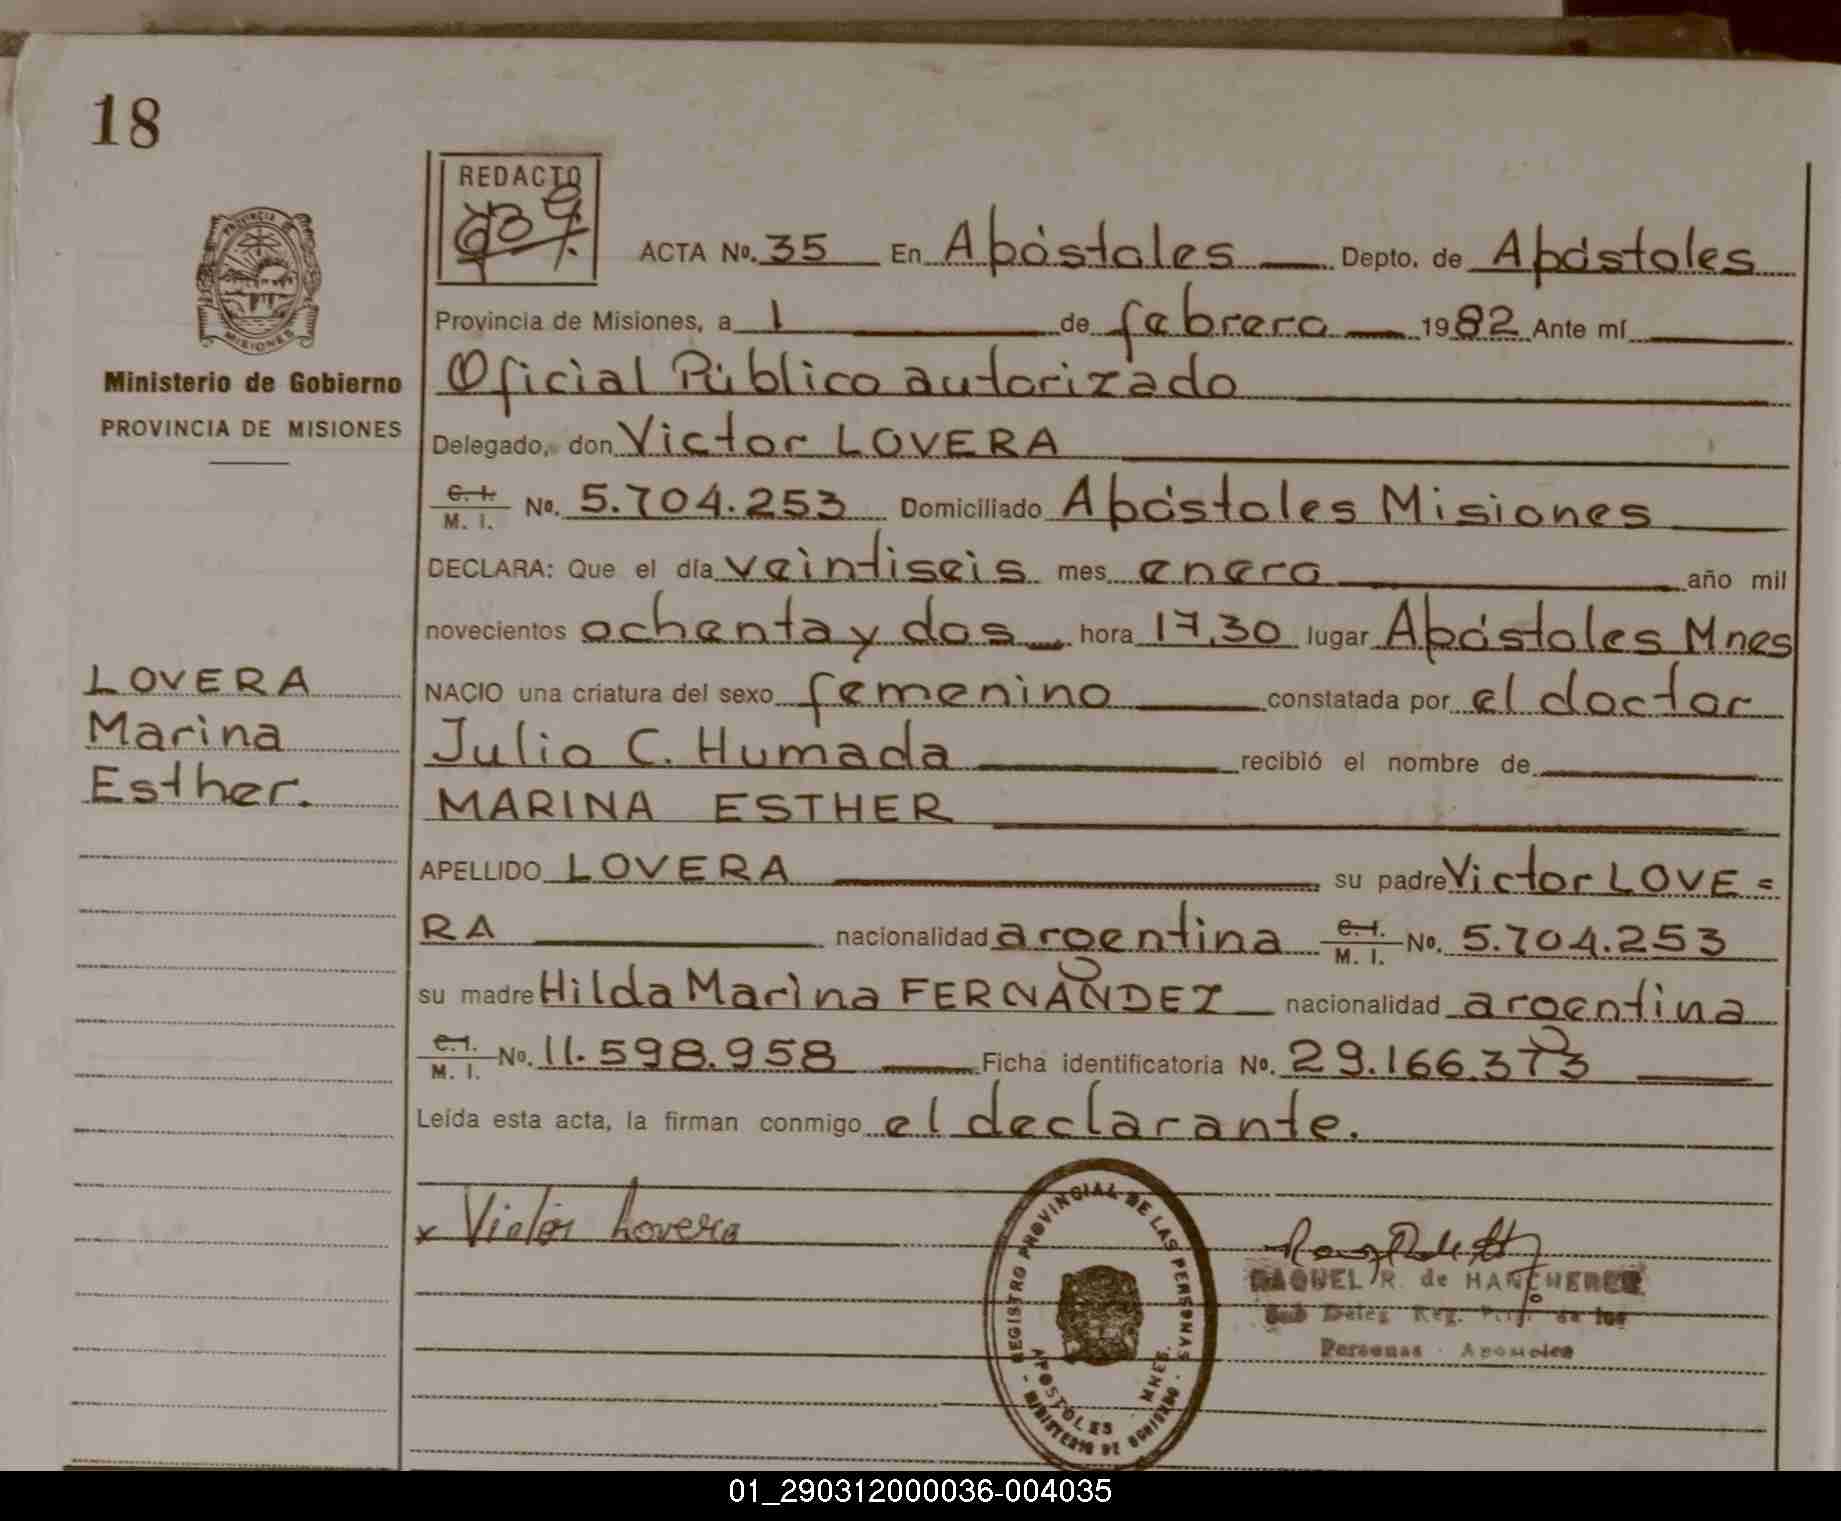 18
REDACTO
PROVINCIA
MISIONES
ACTA No. 35 En Apóstoles Depto. de Apóstoles
Provincia de Misiones, a 1 de febrero 1982 Ante mí
Ministerio de Gobierno
PROVINCIA DE MISIONES
Oficial Público autorizado
Delegado, don Victor LOVERA
C. I. M. I. No. 5.704.253 Domiciliado Apóstoles Misiones
DECLARA: Que el día veintiseis mes enero año mil
novecientos ochenta y dos hora 17,30 lugar Apóstoles Mnes
LOVERA
Marina
Esther.
NACIO una criatura del sexo femenino constatada por el doctor
Julio C. Humada recibió el nombre de
MARINA ESTHER
APELLIDO LOVERA su padre Victor LOVE=
RA nacionalidad argentina C. I. M. I. No. 5.704.253
su madre Hilda Marina FERNANDEZ nacionalidad argentina
C. I. M. I. No. 11.598.958 Ficha identificatoria No. 29.166.373
Leída esta acta, la firman conmigo el declarante.
x Victor Lovera
REGISTRO PROVINCIAL DE LAS PERSONAS
APOSTOLES MNES.
- MINISTERIO DE GOBIERNO -
RAQUEL R. de
Sub Deleg Reg. de las
Personas - Apostoles
01_290312000036-004035